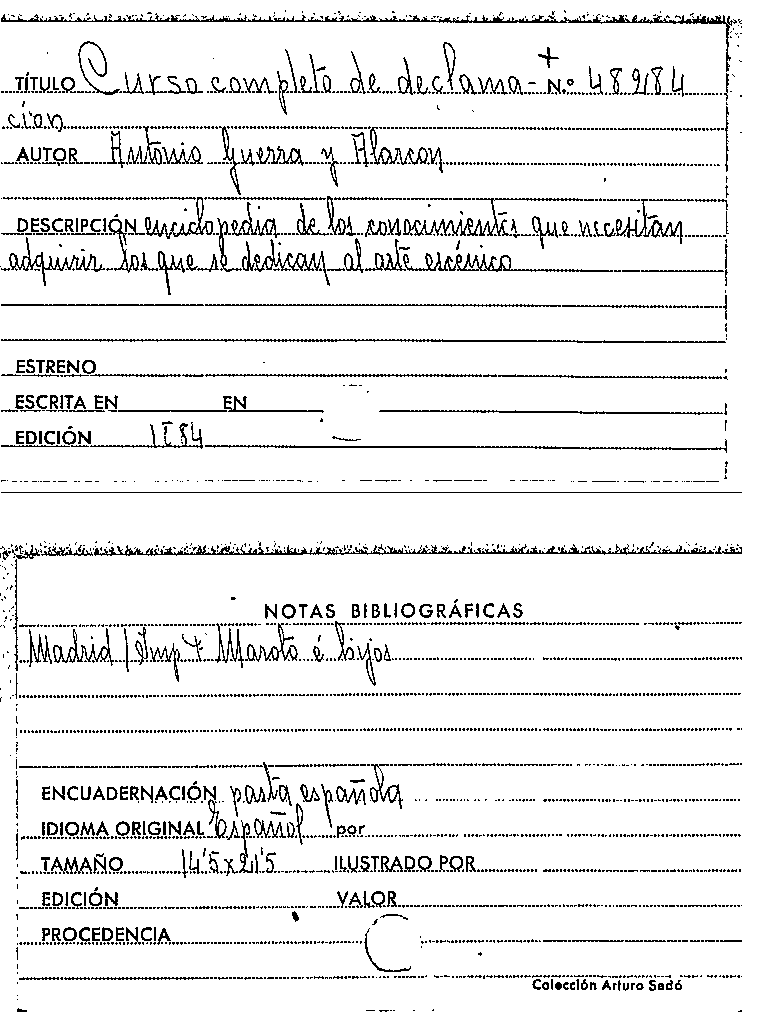 TÍTULO Curso completo de declama- + N.º 48284
cion
AUTOR Antonio Guerra y Alarcon
DESCRIPCIÓN enciclopedia de los conocimientos que necesitan
adquirir los que se dedican al arte escénico
ESTRENO
ESCRITA EN EN
EDICIÓN
NOTAS BIBLIOGRÁFICAS
Madrid / Imp F Maroto é hijos
ENCUADERNACIÓN pasta española
IDIOMA ORIGINAL Español por
TAMAÑO 14'5 x 21'5 ILUSTRADO POR
EDICIÓN VALOR
PROCEDENCIA
Colección Arturo Sedó